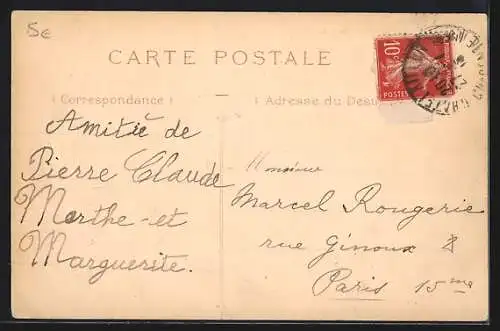 5€
CARTE POSTALE
10c
POSTES
(Correspondance)
Adresse du Des
Amitié de
Pierre Claude
Marthe et
Marguerite.
Monsieur
Marcel Rougerie
rue Ginoux 8
Paris 15me